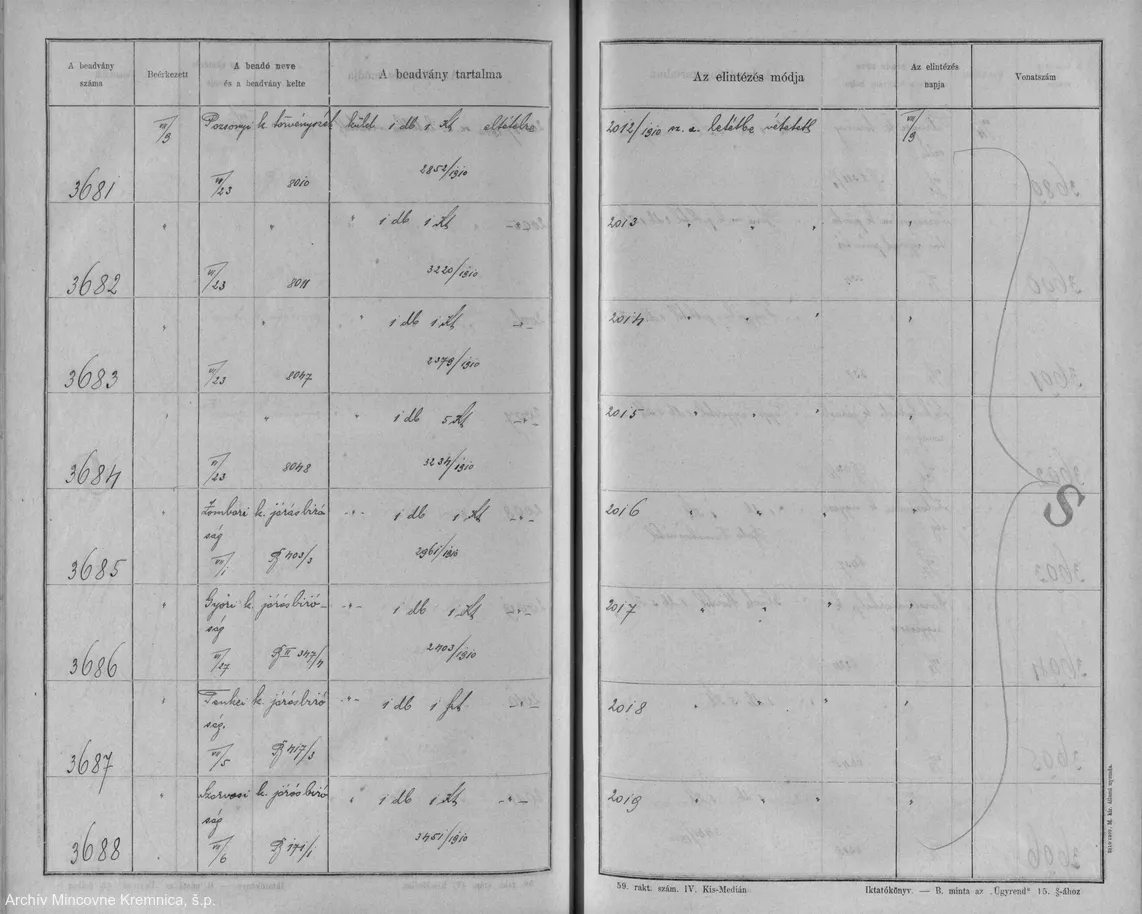 A beadvány száma
Beérkezett
A beadó neve és a beadvány kelte
A beadvány tartalma
Az elintézés módja
Az elintézés napja
Vonatszám
VII/9 Pozsonyi k. törvényszék küld 1 db 1 Kt
2012/1910 letétbe vétetett VII/9
3681 VI/23 8010 2852/1910
" " " 1 db 1 Kt
2013 " " " "
3682 VI/23 8011 3220/1910
" " " 1 db 1 Kt -"-
2014 " " " "
3683 VI/23 8047 2379/1910
" " " 1 db 5 Kt -"-
2015 " " " "
3684 VI/23 8048 3234/1910
" Zombori k. járásbiró -"- 1 db 1 Kt -"-
2016 " " " "
ság
3685 VII/1 403/3 2961/1910
" Győri k. járásbiró- -"- 1 db 1 Kt
2017 " " " "
ság
3686 347/4 2403/1910
" Tenkei k. járásbiró -"- 1 db 1 -"-
2018 " " " "
ság.
3687 VII/5 417/3
" Szarvasi k. járásbiró " 1 db 1 Kt -"-
2019 " " " "
ság
3688 VII/6 171/1 3451/1910
S
59. rakt. szám. IV. Kis-Median.
Iktatókönyv. — B. minta az „Ügyrend“ 15. §-ához
Archív Mincovne Kremnica, š.p.